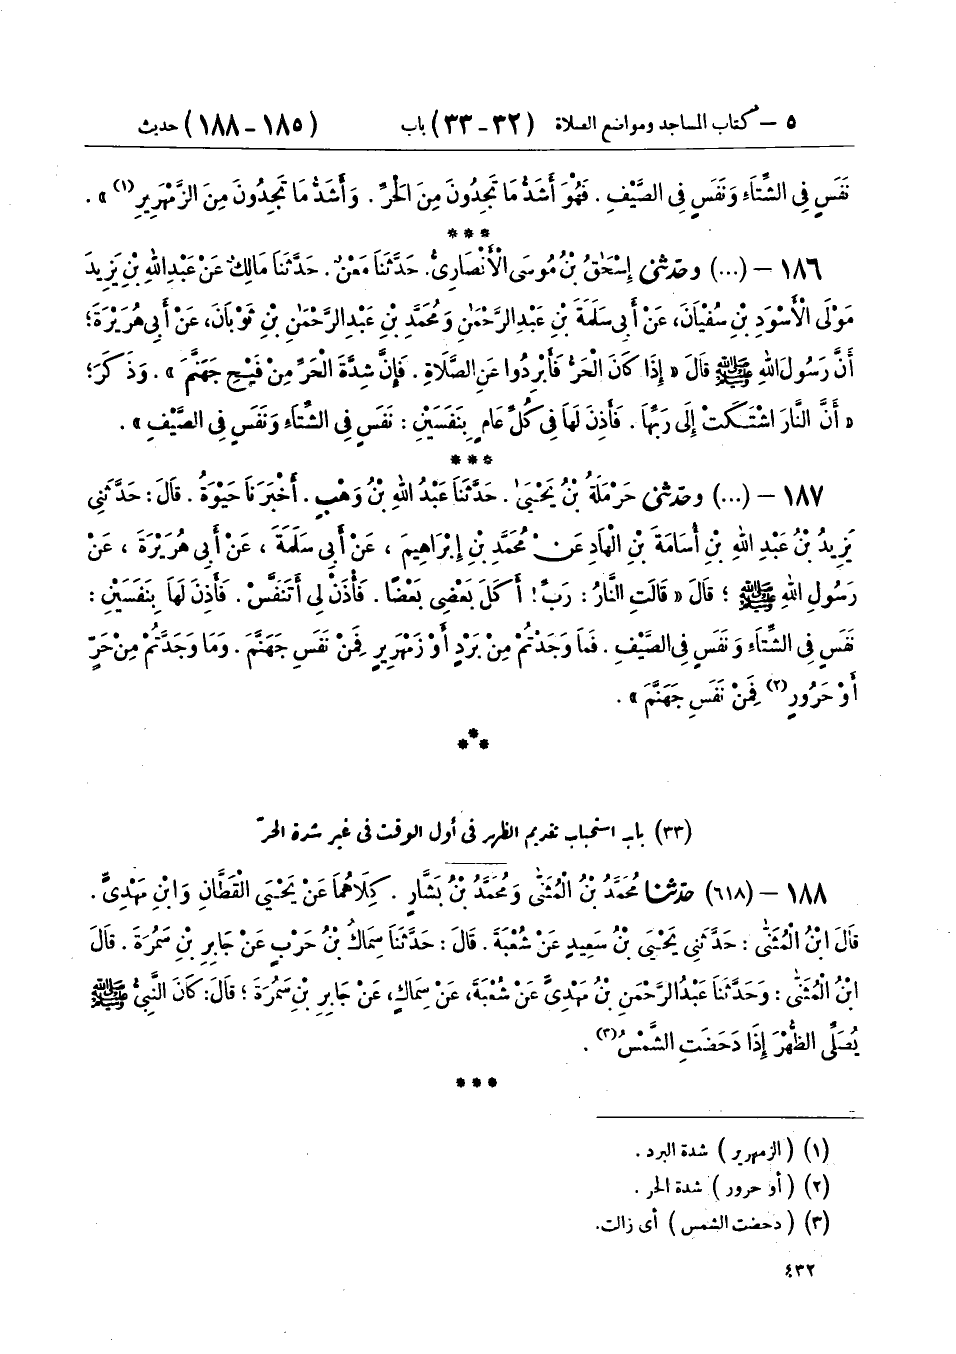 ٥ – كتاب المساجد ومواضع الصلاة (٣٢-٣٣) باب (١٨٥-١٨٨) حديث
نَفَسٍ فِى الشِّتَاءِ وَنَفَسٍ فِى الصَّيْفِ . فَهُوَ أَشَدُّ مَا تَجِدُونَ مِنَ الْحَرِّ . وَأَشَدُّ مَا تَجِدُونَ مِنَ الزَّمْهَرِيرِ(١) » .
***
١٨٦ – (...) وحَدَّثَنِى إِسْحَقُ بْنُ مُوسَى الْأَنْصَارِىُّ. حَدَّثَنَا مَعْنٌ . حَدَّثَنَا مَالِكٌ عَنْ عَبْدِ اللهِ بْنِ يَزِيدَ
مَوْلَى الْأَسْوَدِ بْنِ سُفْيَانَ، عَنْ أَبِى سَلَمَةَ بْنِ عَبْدِ الرَّحْمَنِ وَمُحَمَّدِ بْنِ عَبْدِ الرَّحْمَنِ بْنِ ثَوْبَانَ، عَنْ أَبِى هُرَيْرَةَ؛
أَنَّ رَسُولَ اللهِ ﷺ قَالَ « إِذَا كَانَ الْحَرُّ فَأَبْرِدُوا عَنِ الصَّلَاةِ . فَإِنَّ شِدَّةَ الْحَرِّ مِنْ فَيْحِ جَهَنَّمَ » . وَذَكَرَ؛
« أَنَّ النَّارَ اشْتَكَتْ إِلَى رَبِّهَا . فَأَذِنَ لَهَا فِى كُلِّ عَامٍ بِنَفَسَيْنِ : نَفَسٍ فِى الشِّتَاءِ وَنَفَسٍ فِى الصَّيْفِ » .
***
١٨٧ – (...) وحَدَّثَنِى حَرْمَلَةُ بْنُ يَحْيَى . حَدَّثَنَا عَبْدُ اللهِ بْنُ وَهْبٍ . أَخْبَرَنَا حَيْوَةُ . قَالَ : حَدَّثَنِى
يَزِيدُ بْنُ عَبْدِ اللهِ بْنِ أُسَامَةَ بْنِ الْهَادِ عَنْ مُحَمَّدِ بْنِ إِبْرَاهِيمَ ، عَنْ أَبِى سَلَمَةَ ، عَنْ أَبِى هُرَيْرَةَ ، عَنْ
رَسُولِ اللهِ ﷺ ؛ قَالَ « قَالَتِ النَّارُ : رَبِّ ! أَكَلَ بَعْضِى بَعْضًا . فَأْذَنْ لِى أَتَنَفَّسْ . فَأَذِنَ لَهَا بِنَفَسَيْنِ :
نَفَسٍ فِى الشِّتَاءِ وَنَفَسٍ فِى الصَّيْفِ . فَمَا وَجَدْتُمْ مِنْ بَرْدٍ أَوْ زَمْهَرِيرٍ فَمِنْ نَفَسِ جَهَنَّمَ . وَمَا وَجَدْتُمْ مِنْ حَرٍّ
أَوْ حَرُورٍ(٢) فَمِنْ نَفَسِ جَهَنَّمَ » .
***
(٣٣) باب استحباب تقديم الظهر فى أول الوقت فى غير شدة الحرّ
١٨٨ – (٦١٨) حَدَّثَنَا مُحَمَّدُ بْنُ الْمُثَنَّى وَمُحَمَّدُ بْنُ بَشَّارٍ . كِلَاهُمَا عَنْ يَحْيَى الْقَطَّانِ وَابْنِ مَهْدِىٍّ .
قَالَ ابْنُ الْمُثَنَّى : حَدَّثَنِى يَحْيَى بْنُ سَعِيدٍ عَنْ شُعْبَةَ . قَالَ : حَدَّثَنَا سِمَاكُ بْنُ حَرْبٍ عَنْ جَابِرِ بْنِ سَمُرَةَ . قَالَ
ابْنُ الْمُثَنَّى : وَحَدَّثَنَا عَبْدُ الرَّحْمَنِ بْنُ مَهْدِىٍّ عَنْ شُعْبَةَ، عَنْ سِمَاكٍ، عَنْ جَابِرِ بْنِ سَمُرَةَ ؛ قَالَ: كَانَ النَّبِىُّ ﷺ
يُصَلِّى الظُّهْرَ إِذَا دَحَضَتِ الشَّمْسُ(٣) .
***
(١) ( الزمهرير ) شدة البرد .
(٢) ( أو حرور ) شدة الحر .
(٣) ( دحضت الشمس ) أى زالت.
٤٣٢